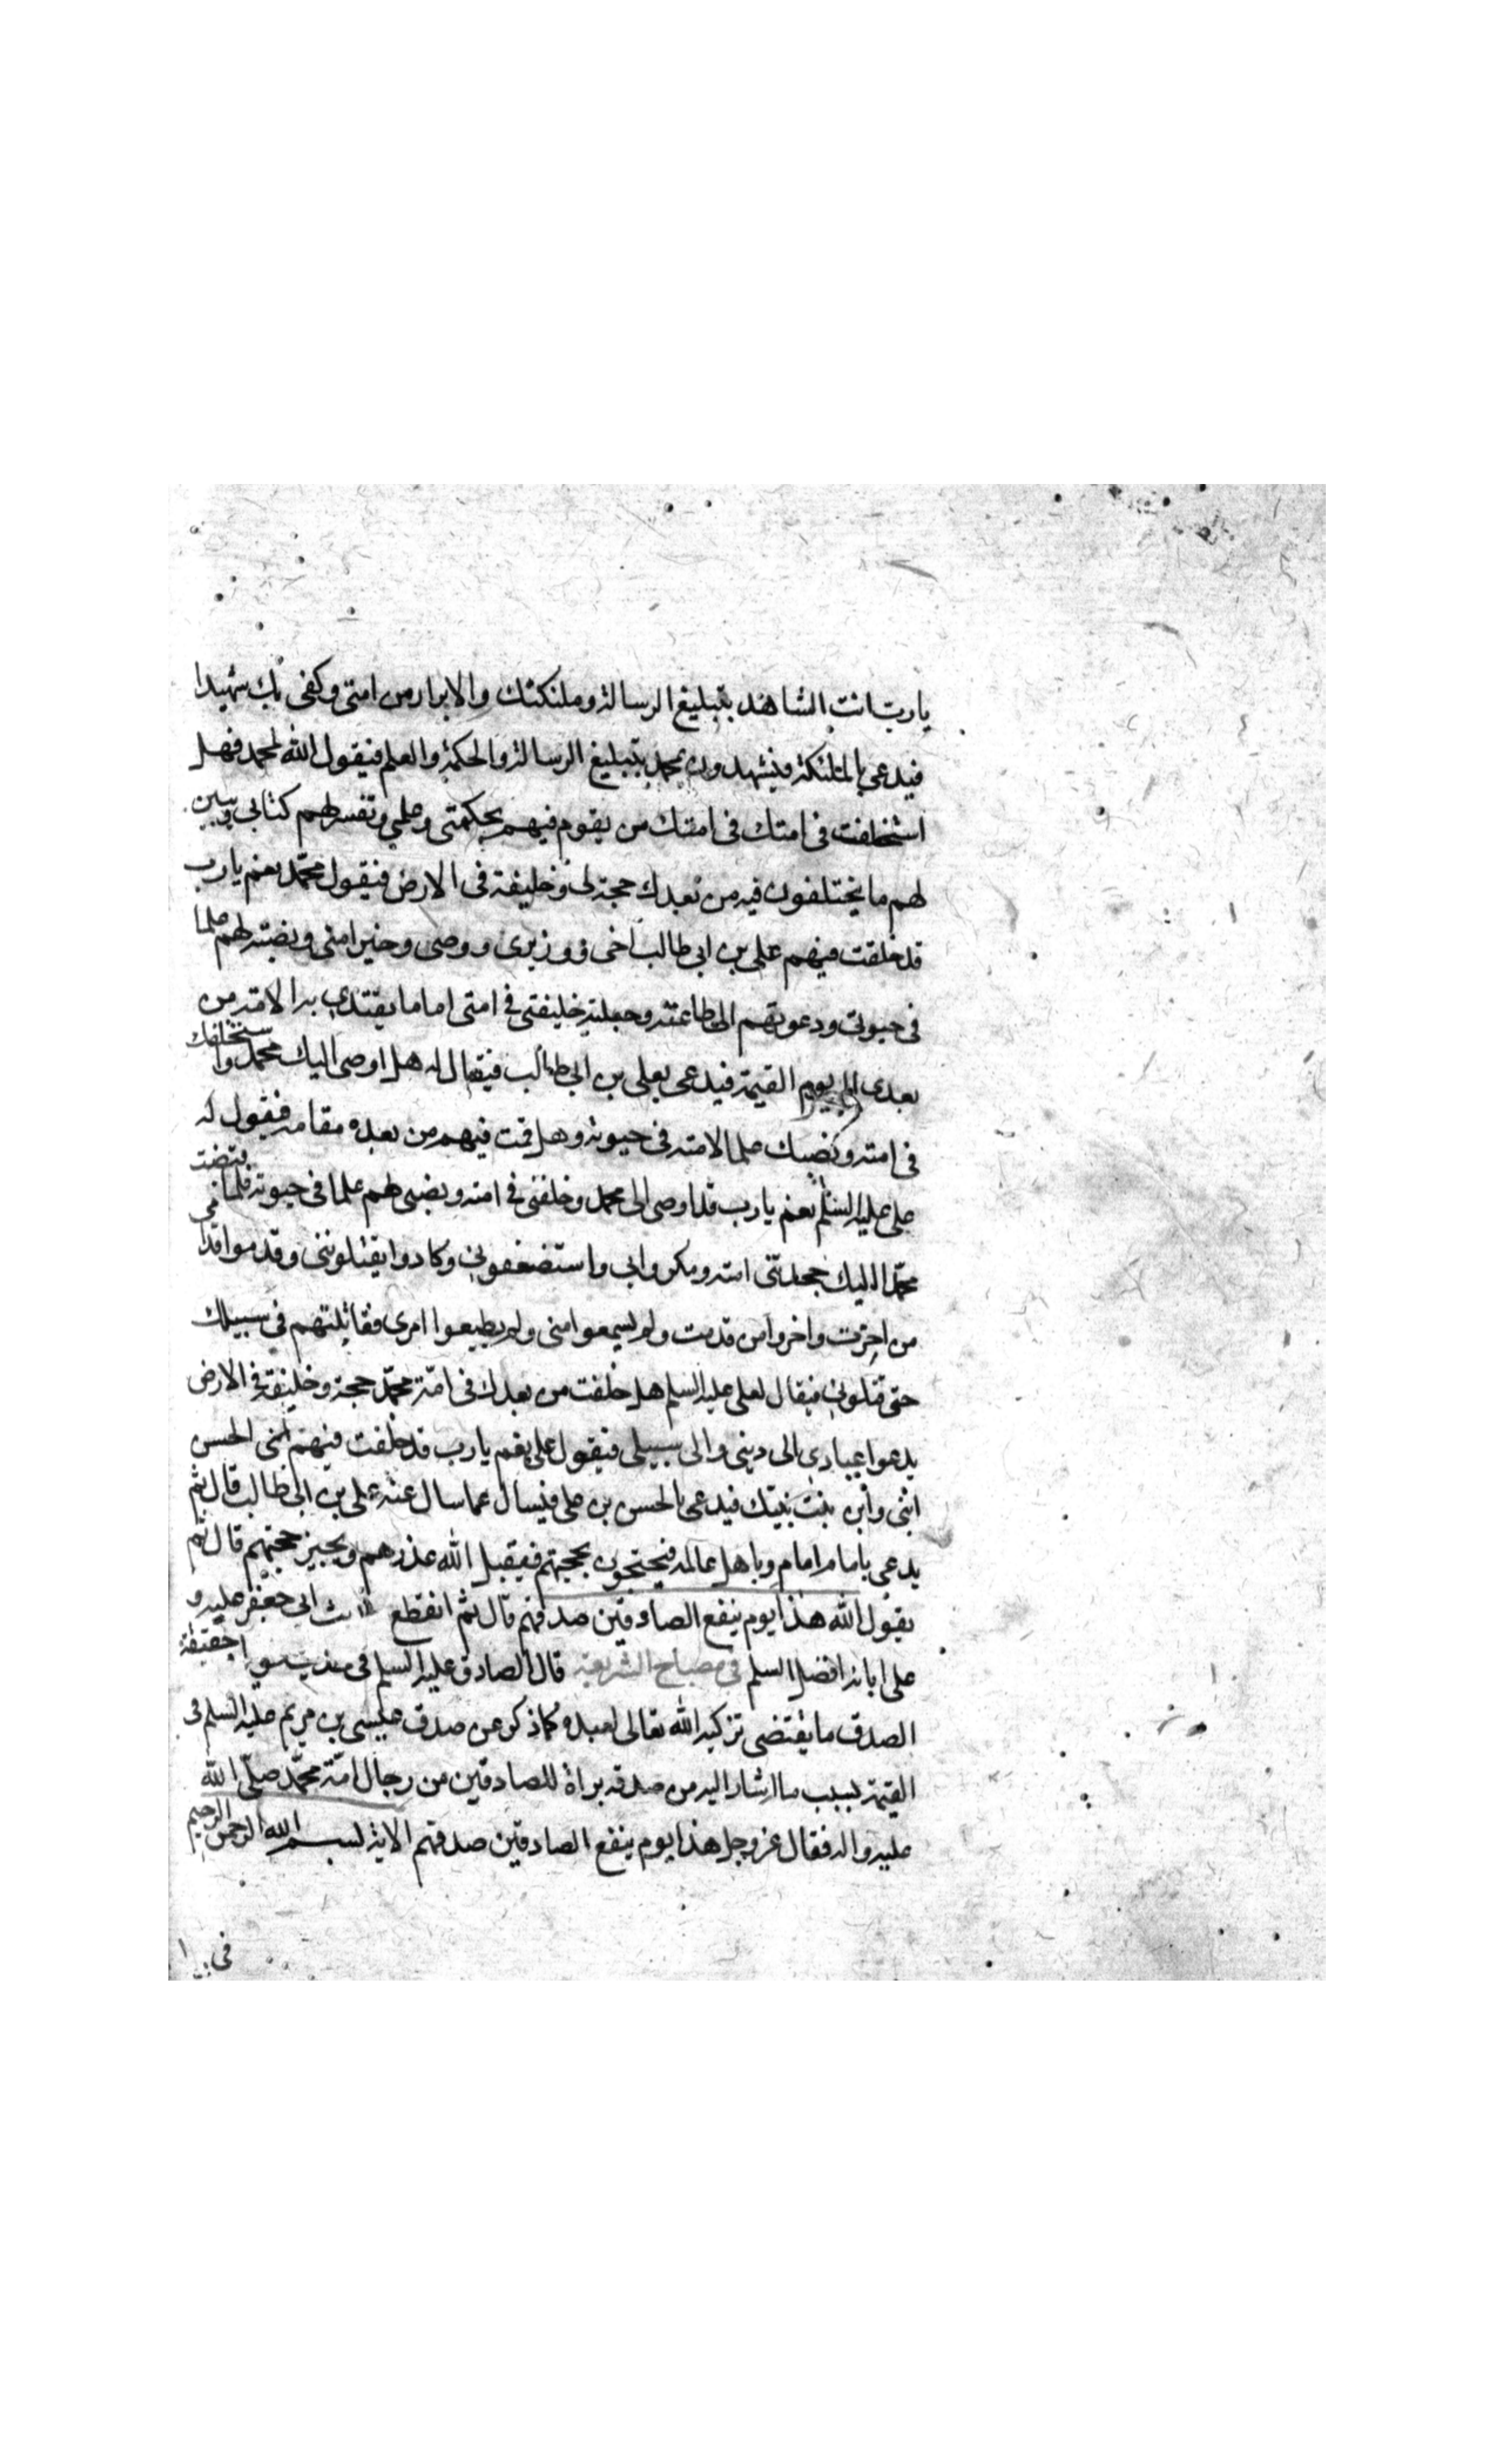 يا رب انت الشاهد بتبليغ الرسالة وملئكتك والابرار من امتى وكفى بك شهيدا
فيدعى بالملئكة فيشهدون لمحمد بتبليغ الرسالة والحكمة والعلم فيقول الله لمحمد فهل
استخلفت فى امتك فى امتك من يقوم فيهم بحكمتى وعلمى وتفسر لهم كتابى ويبين
لهم ما يختلفون فيه من بعدك حجة لى وخليفة فى الارض فيقول محمد نعم يا رب
قد خلفت فيهم على بن ابى طالب اخى ووزيرى ووصى وخير امتى ونصبته لهم علما
فى حيوتى ودعوتهم الى طاعته وجعلته خليفتى فى امتى اماما يقتدى به الامة من
بعدى الى يوم القيمة فيدعى بعلى بن ابى طالب فيقال له هل اوصى اليك محمد واستخلفك
فى امته ونصبك علما لامته فى حيوته وهل قمت فيهم من بعده مقامه فيقول له
على عليه السلم نعم يا رب قد اوصى الى محمد وخلفنى فى امته ونصبنى لهم علما فى حيوته فلما قبضت
محمد اليك جحدتنى امته ومكروا بى واستضعفونى وكادوا يقتلوننى وقدموا قدامى
من اخرت واخروا من قدمت ولم يسمعوا منى ولم يطيعوا امرى فقاتلتهم فى سبيلك
حتى قتلونى فيقال لعلى عليه السلم هل خلفت من بعدك فى امة محمد حجة وخليفة فى الارض
يدعوا عبادى الى دينى والى سبيلى فيقول على نعم يا رب قد خلفت فيهم الحسن
ابنى وابن بنت نبيك فيدعى بالحسن بن على فيسال عما سال عنه على بن ابى طالب قال ثم
يدعى بامام امام وباهل عالمه فيحتجون بحجتهم فيقبل الله عذرهم ويجيز حجتهم قال ثم
يقول الله هذا يوم ينفع الصادقين صدقهم قال ثم انقطع ابى جعفر عليه و
على ابائه افضل السلم فى مصباح الشريعة قال الصادق عليه السلم فى حقيقة
الصدق ما يقتضى تزكيه الله تعالى لعبده كما ذكر عن صدق عيسى بن مريم عليه السلم فى
القيمة بسبب ما اشار اليه من صدقه براة للصادقين من رجال امة محمد صلى الله
عليه واله فقال عز وجل هذا يوم ينفع الصادقين صدقهم الاية بسم الله الرحمن الرحيم
فى